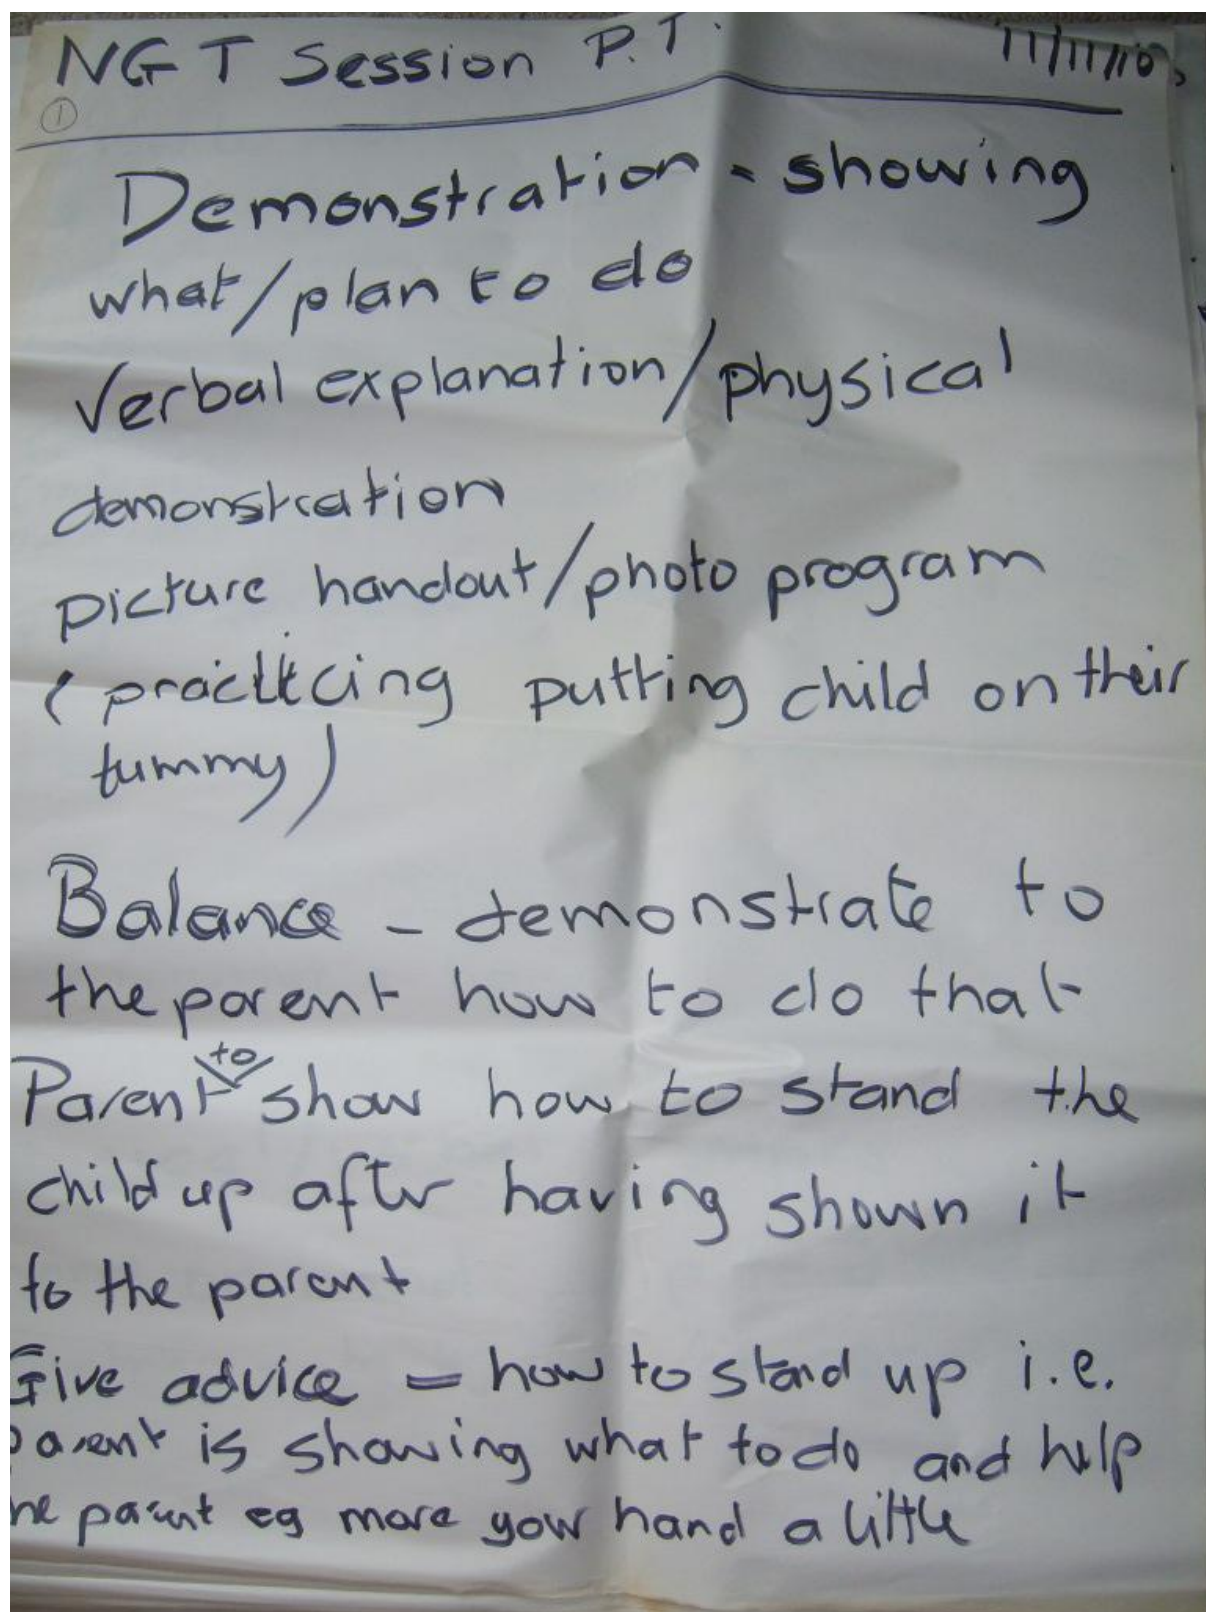 NGT Session P.T.
11/11/10
1
Demonstration - showing
what/plan to do
Verbal explanation/physical
demonstration
picture handout/photo program
(practicing putting child on their
tummy)
Balance - demonstrate to
the parent how to do that
Parent to show how to stand the
child up after having shown it
to the parent
Give advice = how to stand up i.e.
parent is showing what to do and help
he parent eg more your hand a little